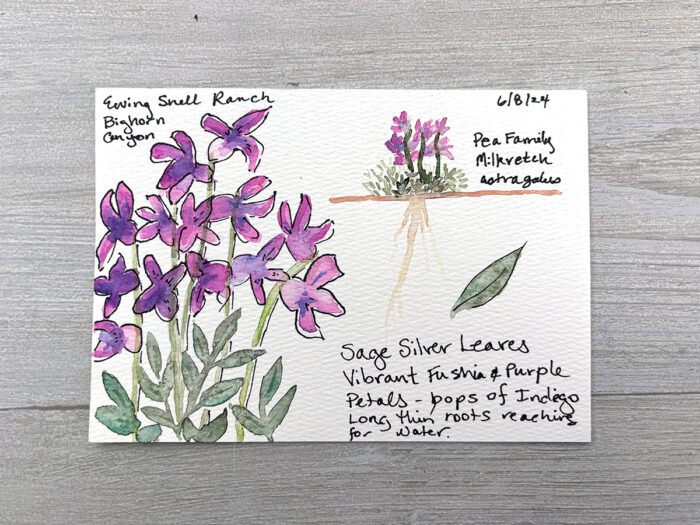 Ewing Snell Ranch
Bighorn
Canyon
6/8/24
Pea Family
Milkvetch
astragalus
Sage Silver Leaves
Vibrant Fushia & Purple
Petals - pops of Indego
Long thin roots reaching
for water.